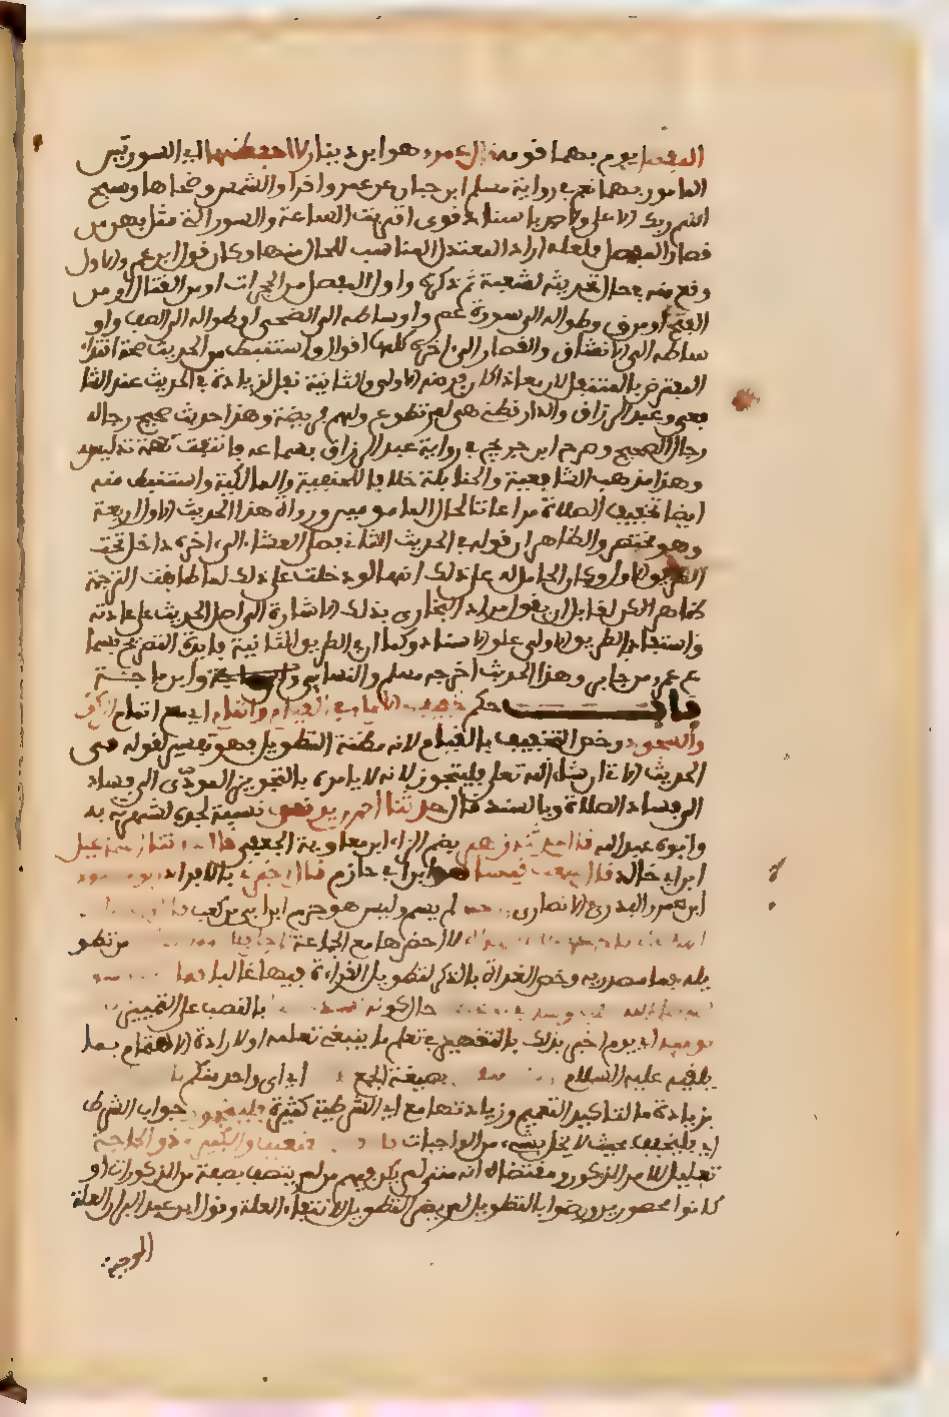 المفصل يوم بهما قومه قال عمرو هو ابن دينار لا احفظهما اي السورتين
المامور بهما نعم في رواية مسلم ابن حبان عن عمرو اقرا والشمس وضحاها وسبح
اسم ربك الاعلى ولاحمد باسناد قوى اقتربت الساعة والسور التي مثل بهن من
قصار المفصل فلعله اراد المعتدل المناسب للحال منها وكان قول ابن عمر والاول
وقع منه في حال تحديثه لشعبة ثم ذكره واول المفصل من الحجرات او من القتال او من
الفتح او من ق وطواله الى سورة عم واوساطه الى الضحى او طواله الى الصف واو
ساطه الى الانشقاق والقصار الى اخره كلها اقوال واستنبط من الحديث صحة اقتداء
المفترض بالمتنفل لان معاذا كان فرضه الاولى والثانية نفل لزيادة في الحديث عند الشا
فعي وعبد الرزاق والدارقطني هي له تطوع ولهم فريضة وهذا حديث صحيح رجاله
رجال الصحيح وصرح ابن جريج في رواية عبد الرزاق بسماعه فانتفت تهمة تدليسه
وهذا مذهب الشافعية والحنابلة خلافا للحنفية والمالكية واستنبط منه
ايضا تخفيف الصلاة مراعاتا لحال المامومين ورواة هذا الحديث الاول اربعة
وهو مختصر والظاهر ان قوله في الحديث الثاني فصلى العشا الى اخره داخل تحت
الطريق الاول وكان الحامل له على ذلك انها لو دخلت على ذلك لما طابقت الترجمة
ظاهرا لكن لقايل ان يقول مراد البخاري بذلك الاشارة الى اصل الحديث على عادته
واستفاد بالطريق الاولى علو الاسناد وكما ان في الطريق الثانية فايدة التصريح بسماع
عمرو من جابر وهذا الحديث اخرجه مسلم والنسايي وابن ماجة
باب حكم تخفيف الامام في القيام واتمام اي مع اتمام الركوع
والسجود وخص التخفيف بالقيام لانه مظنة التطويل فهو تفسير لقوله في
الحديث الاتي ان شاء الله تعلى فليتجوز لانه لا يامره بالتجويز المودّى الى فساد
الى فساد الصلاة وبالسند قال حدثنا احمد بن يونس نسبة لجده لشهرته به
وابوه عبد الله قال حدثنا زهير بضم الزاء ابن معاوية الجعفي قال حدثنا اسمعيل
ابن ابي خالد قال سمعت قيسا هو ابن ابي حازم قال اخبرني بالافراد ابو مسعود
ابن عمرو البدري الانصاري لم يسم وليس هو حزم ابن ابي بن كعب
لا احضرها مع الجماعة من تطو
يله فما مصدريه وخص الغداة بالذكر لتطويل القراءة فيها غالبا
حال كونه بالنصب على التمييز
يومئذ اي يوم اخبر بذلك بالتقصير في تعلم ما ينبغي تعلمه او لارادة الاهتمام بما
يلقيه عليه السلام بصيغة الجمع اي اي واحد منكم ما
بزيادة ما لتاكيد التعميم وزيادتها مع اي الشرطية كثيرة فليتجوز جواب الشرط
اي فليخفف بحيث لا يخل بشيء من الواجبات الضعيف والكبير وذا الحاجة
تعليل للامر المذكور ومقتضاه انه متى لم يكن فيهم من لم يتصف بصفة من المذكورات او
كانوا محصورين ورضوا بالتطويل لم يضر التطويل لانتفاء العلة وقول ابن عبد البر العلة
الموجبة